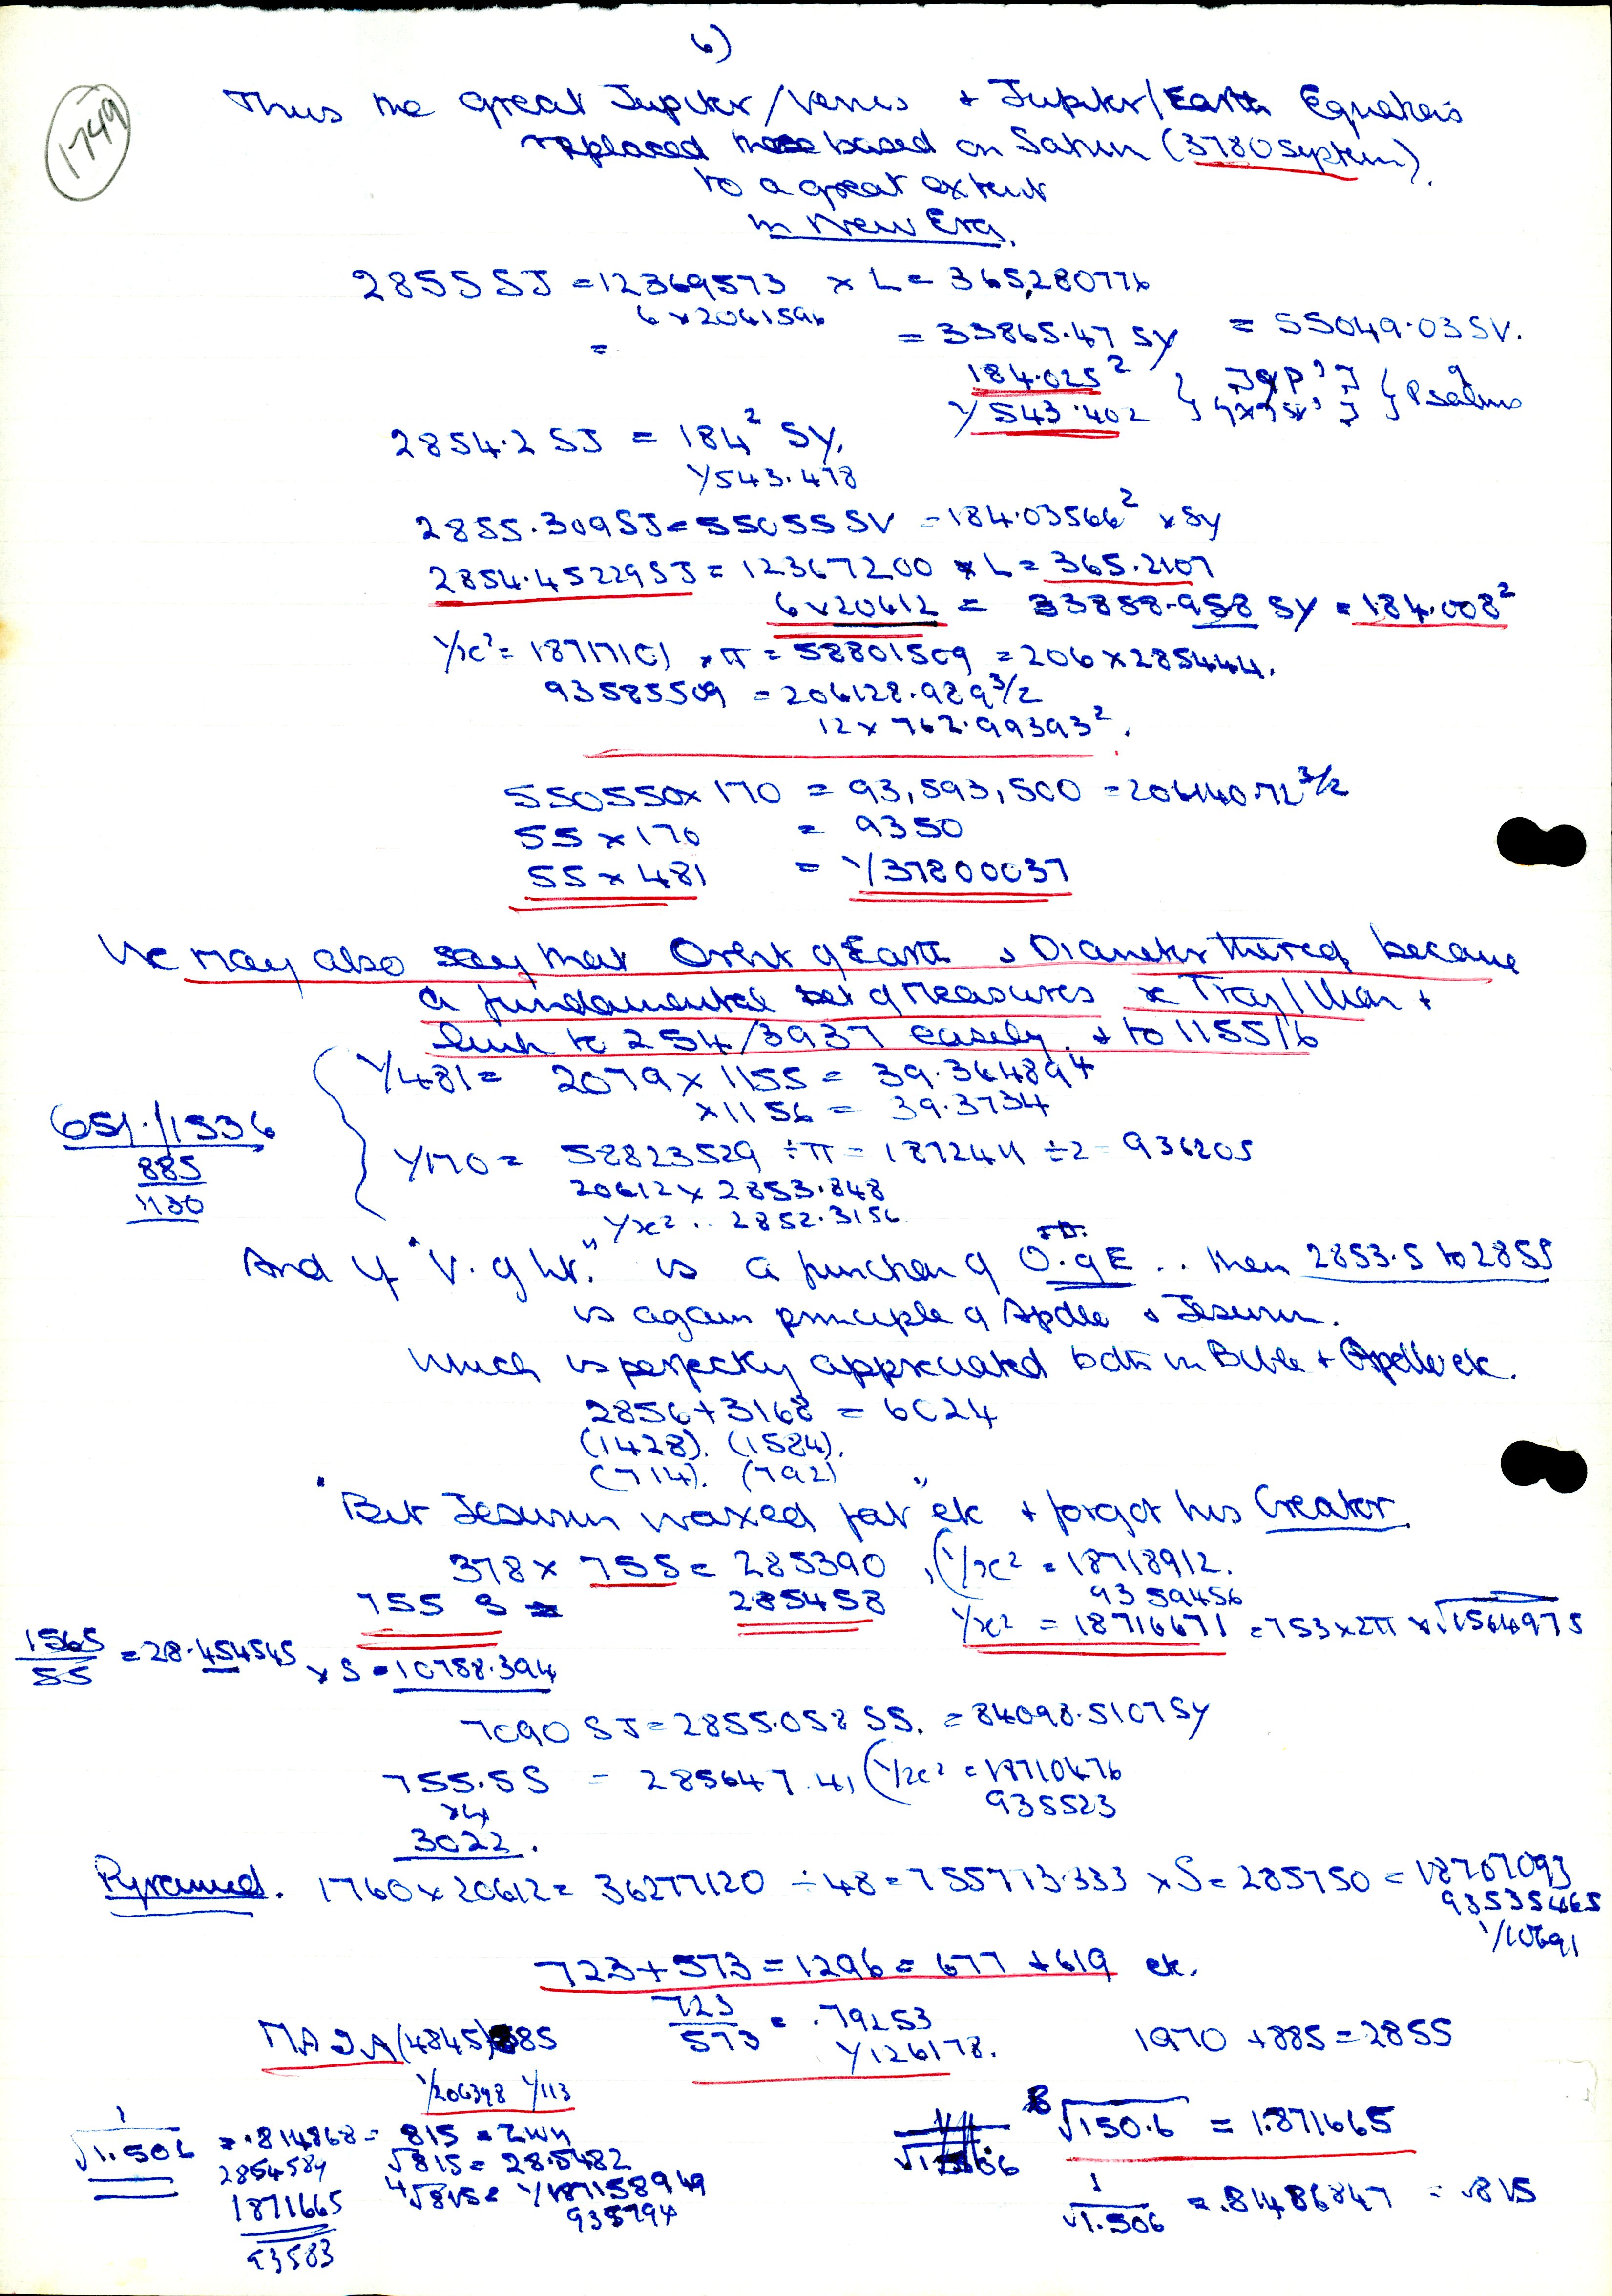 6)
1749
Thus the great Jupiter/Venus + Jupiter/Earth Equations
replaced those based on Saturn (3780 system).
to a great extent
in New Era.
2855 SJ = 12369573 × L = 365,280776
6 × 2061596
= = 33865.47 SY = 55049.03 SV.
184.025²
Y/543.402 Psalms
2854.2 SJ = 184² SY.
Y/543.478
2855.309 SJ = 55055 SV = 184.03566² × SY
2854.45229 SJ = 12367200 × L = 365.2107
6 × 20612 = 33858.958 SY = 184.008²
Y/x² = 18717101 × π = 58801509 = 206 × 285444.
93585509 = 206128.989 3/2
12 × 762.99393².
550550 × 170 = 93,593,500 = 206140.72 3/2
55 × 170 = 9350
55 × 481 = Y/37800037
We may also say that Orbit of Earth & Diameter thereof became
a fundamental set of Measures × Troy/ +
link to 254/3937 easily. + to 11551b
Y/481 = 2079 × 1155 = 39.364894
× 1156 = 39.3734
651./1536
885
1130
Y/170 = 58823529 ÷ π = 187244 ÷ 2 = 936205
20612 × 2853.848
Y/x² .. 2852.3156
And if "V. of Lt." is a function of O. of E .. then 2853.5 to 2855
is again principle of Apollo & Jesurun.
Which is perfectly appreciated both in Bible + Apollo etc.
2856 + 3168 = 6024
(1428). (1584).
(714). (792)
"But Jesurun waxed fat" etc + forgot his Creator.
378 × 755 = 285390, (Y/x² = 18718912.
9359456
755 S = 285458 Y/x² = 18716671 = 753 × 2π × √1564975
1565/55 = 28.454545 × S = 10758.394
7090 SJ = 2855.058 SS. = 84098.5107 SY
755.5 S = 285647.41 (Y/x² = 18710476
935523
×4
3022.
Pyramid. 1760 × 20612 = 36277120 ÷ 48 = 755773.333 × S = 285750 = 18707093
93535465
Y/10691
723 + 573 = 1296 = 677 + 619 etc.
723/573 = .79253
Y/126178.
(4845) 885
Y/206398 Y/113
1970 + 885 = 2855
1/√1.506 = .814868 = 815 =
2854584 √815 = 28.5482
1871665 4√815 = Y/187158949
93583 935794
8√150.6 = 1.871665
1/√1.506 = .81486847 = .815